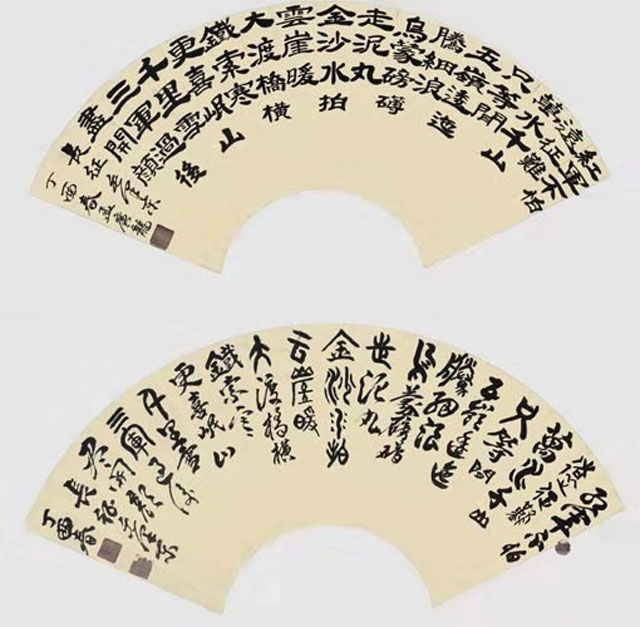 紅軍不怕
遠征難
萬水千山
只等閒
五嶺逶迤
騰細浪
烏蒙磅礴
走泥丸
金沙水拍
雲崖暖
大渡橋橫
鐵索寒
更喜岷山
千里雪
三軍過後
盡開顏
長征 毛澤東
丁酉春
紅軍不怕
遠征難
萬水千山
只等閒
五嶺逶迤
騰細浪
烏蒙磅礴
走泥丸
金沙水拍
云崖暖
大渡橋橫
鐵索寒
更喜岷山
千里雪
三軍過後
盡開顏
長征 毛澤東
丁酉春